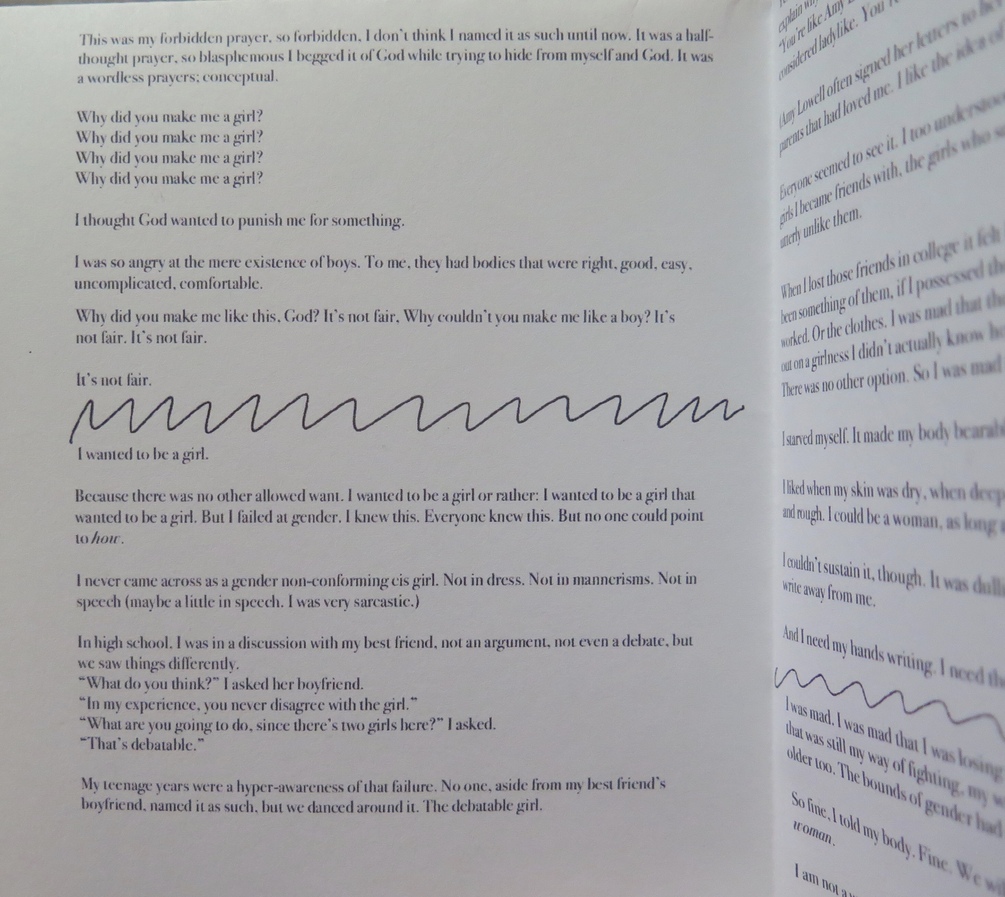 This was my forbidden prayer, so forbidden, I don't think I named it as such until now. It was a half-
thought prayer, so blasphemous I begged it of God while trying to hide from myself and God. It was
a wordless prayers; conceptual.
Why did you make me a girl?
Why did you make me a girl?
Why did you make me a girl?
Why did you make me a girl?
I thought God wanted to punish me for something.
I was so angry at the mere existence of boys. To me, they had bodies that were right, good, easy,
uncomplicated, comfortable.
Why did you make me like this, God? It's not fair, Why couldn't you make me like a boy? It's
not fair. It's not fair.
It's not fair.
I wanted to be a girl.
Because there was no other allowed want. I wanted to be a girl or rather: I wanted to be a girl that
wanted to be a girl. But I failed at gender. I knew this. Everyone knew this. But no one could point
to how.
I never came across as a gender non-conforming cis girl. Not in dress. Not in mannerisms. Not in
speech (maybe a little in speech. I was very sarcastic.)
In high school, I was in a discussion with my best friend, not an argument, not even a debate, but
we saw things differently.
"What do you think?" I asked her boyfriend.
"In my experience, you never disagree with the girl."
"What are you going to do, since there's two girls here?" I asked.
"That's debatable."
My teenage years were a hyper-awareness of that failure. No one, aside from my best friend's
boyfriend, named it as such, but we danced around it. The debatable girl.
explain why
"You're like Amy
considered ladylike. You
(Amy Lowell often signed her letters to
parents that had loved me. I like the idea of
Everyone seemed to see it. I too understood
girls I became friends with, the girls who
utterly unlike them.
When I lost those friends in college it felt
been something of them, if I possessed
worked. Or the clothes. I was mad that
out on a girlness I didn't actually know
There was no other option. So I was mad
I starved myself. It made my body
I liked when my skin was dry, when
and rough. I could be a woman, as long
I couldn't sustain it, though. It was
write away from me.
And I need my hands writing. I need
I was mad. I was mad that I was losing
that was still my way of fighting, my
older too. The bounds of gender had
So fine, I told my body. Fine. We
woman.
I am not a